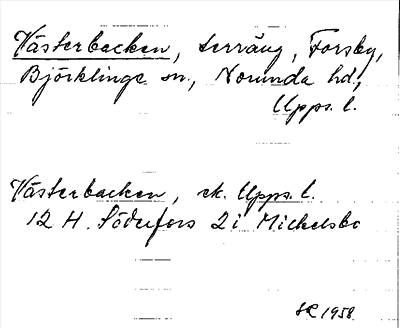 Västerbacken, terräng, Forsby,
Björklinge sn., Norunda hd.,
Upps. l.
Västerbacken, ek. Upps. l.
12 H. Söderfors 2 i Michelsbo
1958.